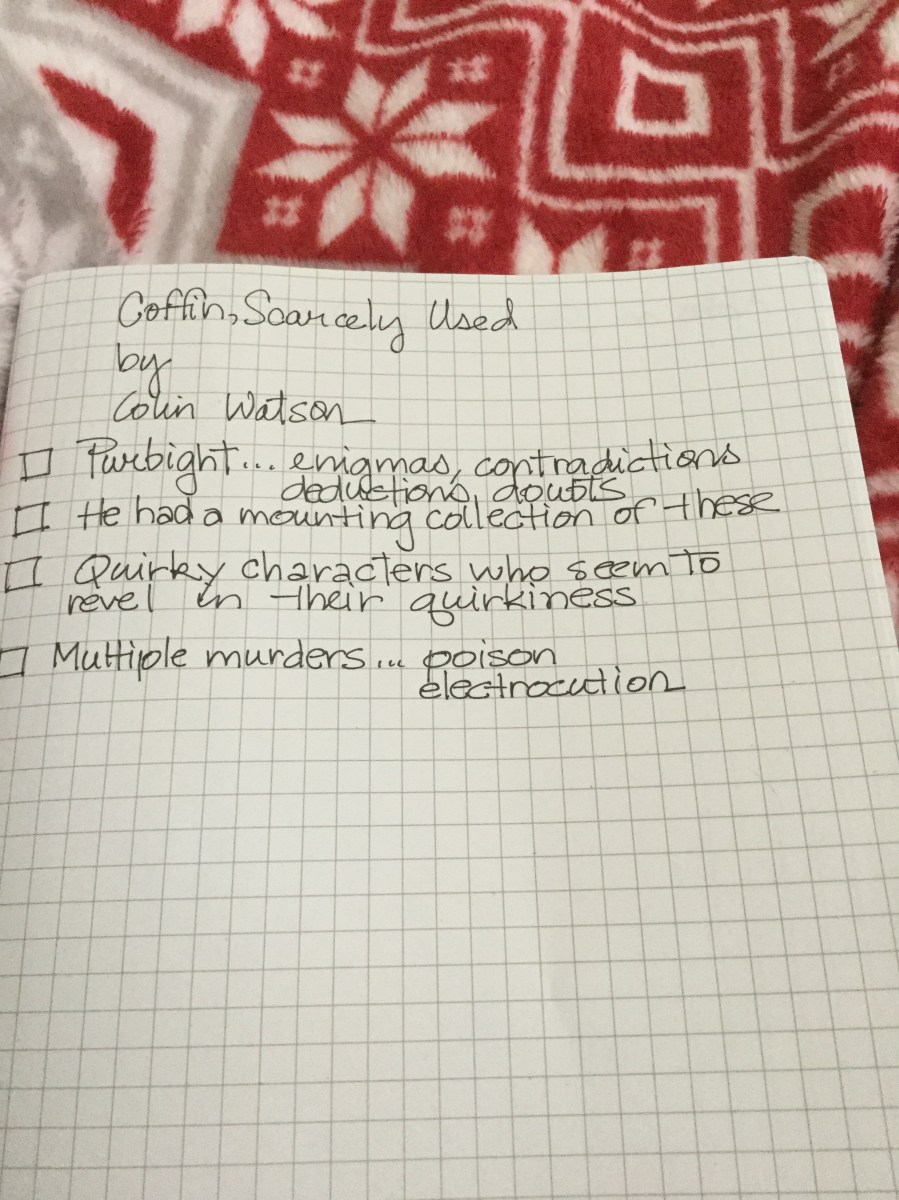 Coffin, Scarcely Used
by
Colin Watson
Purbight... enigmas, contradictions
deductions, doubts
He had a mounting collection of these
Quirky characters who seem to
revel in their quirkiness
Multiple murders... poison
electrocution